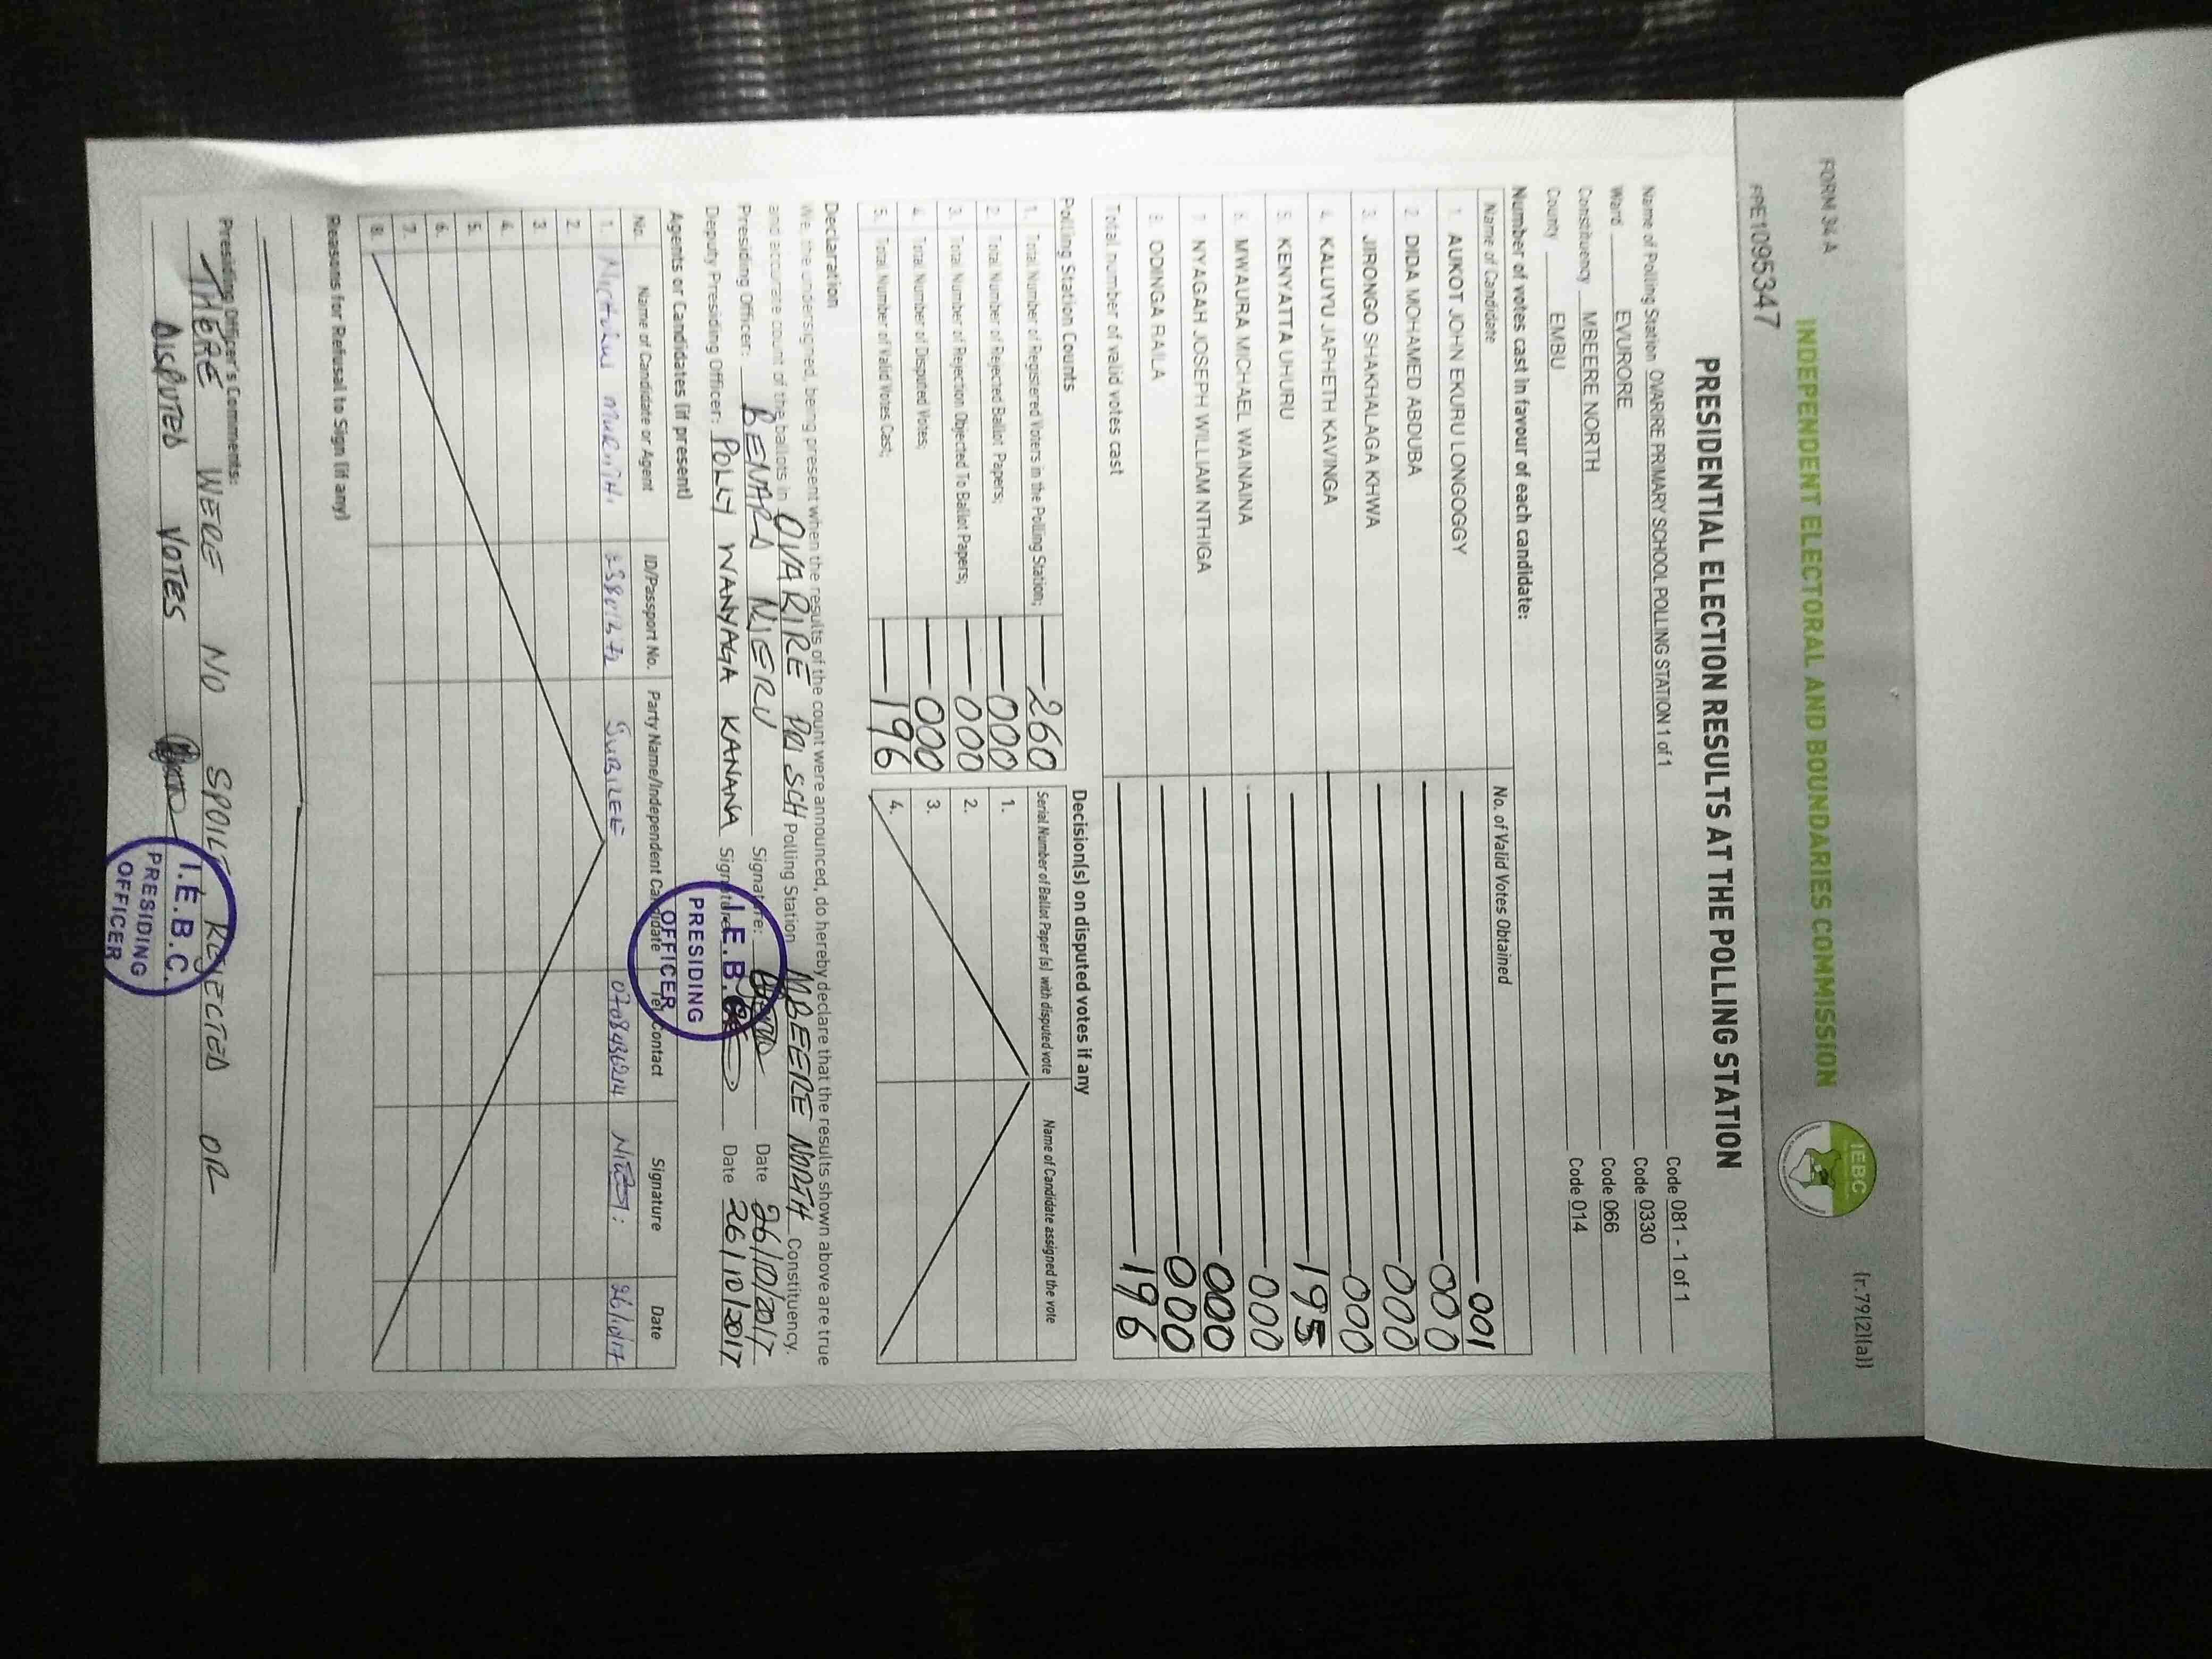 FORM 34 A
(r.79(2)(a))
INDEPENDENT ELECTORAL AND BOUNDARIES COMMISSION
IEBC
PRESIDENTIAL ELECTION RESULTS AT THE POLLING STATION
Name of Polling Station OVARIRE PRIMARY SCHOOL POLLING STATION 1 of 1 Code 081 - 1 of 1
Ward EVURORE Code 0330
Constituency MBEERE NORTH Code 066
County EMBU Code 014
Number of votes cast in favour of each candidate:
Name of Candidate No. of Valid Votes Obtained
1. AUKOT JOHN EKURU LONGOGGY 001
2. DIDA MOHAMED ABDUBA 000
3. JIRONGO SHAKHALAGA KHWA 000
4. KALUYU JAPHETH KAVINGA 000
5. KENYATTA UHURU 195
6. MWAURA MICHAEL WAINAINA 000
7. NYAGAH JOSEPH WILLIAM NTHIGA 000
8. ODINGA RAILA 000
Total number of valid votes cast 196
Polling Station Counts
1. Total Number of Registered Voters in the Polling Station; 260
2. Total Number of Rejected Ballot Papers; 000
3. Total Number of Rejection Objected To Ballot Papers; 000
4. Total Number of Disputed Votes; 000
5. Total Number of Valid Votes Cast; 196
Decision(s) on disputed votes if any
Serial Number of Ballot Paper (s) with disputed vote Name of Candidate assigned the vote
1.
2.
3.
4.
Declaration
We, the undersigned, being present when the results of the count were announced, do hereby declare that the results shown above are true
and accurate count of the ballots in OVARIRE PRI SCH Polling Station MBEERE NORTH Constituency.
Presiding Officer: BENARD NJERU Signature: Date 26/10/2017
Deputy Presiding Officer: POLLY WANYAGA KANANA Signature: Date 26/10/2017
I.E.B.C.
PRESIDING
OFFICER
Agents or Candidates (if present)
No. Name of Candidate or Agent ID/Passport No. Party Name/Independent Candidate Tel Contact Signature Date
1. JUBILEE 26/10/17
2.
3.
4.
5.
6.
7.
8.
Reasons for Refusal to Sign (if any)
Presiding Officer's Comments:
THERE WERE NO SPOILT REJECTED OR
DISPUTED VOTES
I.E.B.C.
PRESIDING
OFFICER